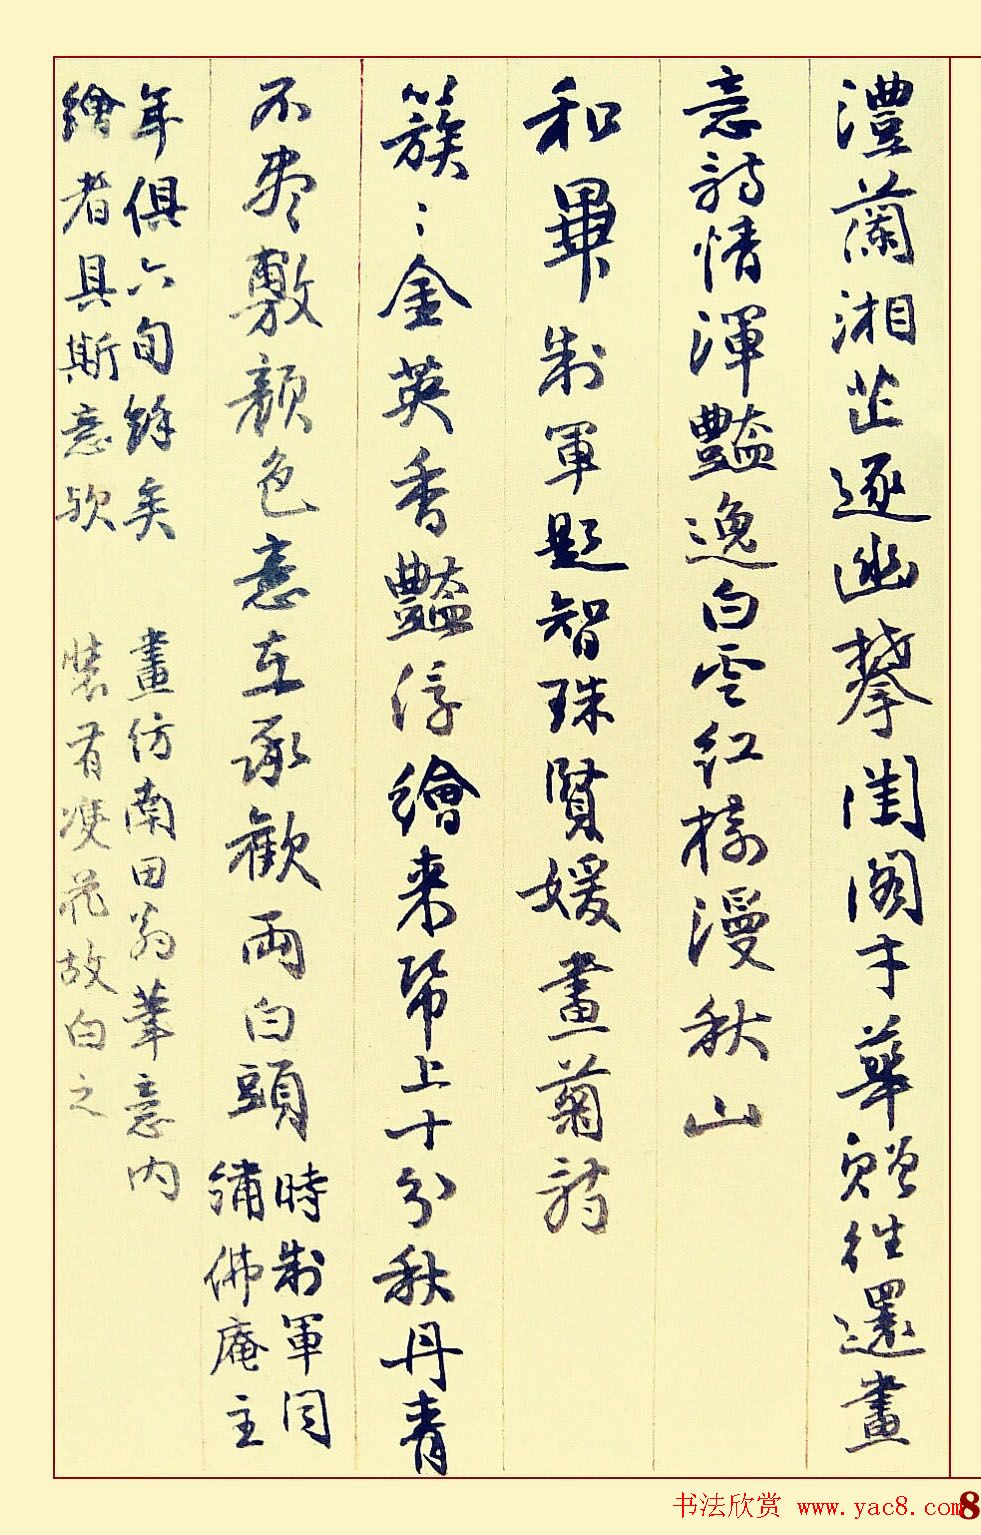 澧蘭湘芷逐幽攀閨閣才華贈往還畫
意詩情渾豔逸白雲紅樹漫秋山
和畢制軍題智珠賢媛畫菊詩
簇〻金英香豔浮繪来幣上十分秋丹青
不盡敷顏色意在承歡兩白頭
時制軍同
繡佛庵主
年俱六旬餘矣
繪者具斯意歟
畫仿南田翁筆意内
裝有凌花故白之
书法欣赏 www.yac8.com
8